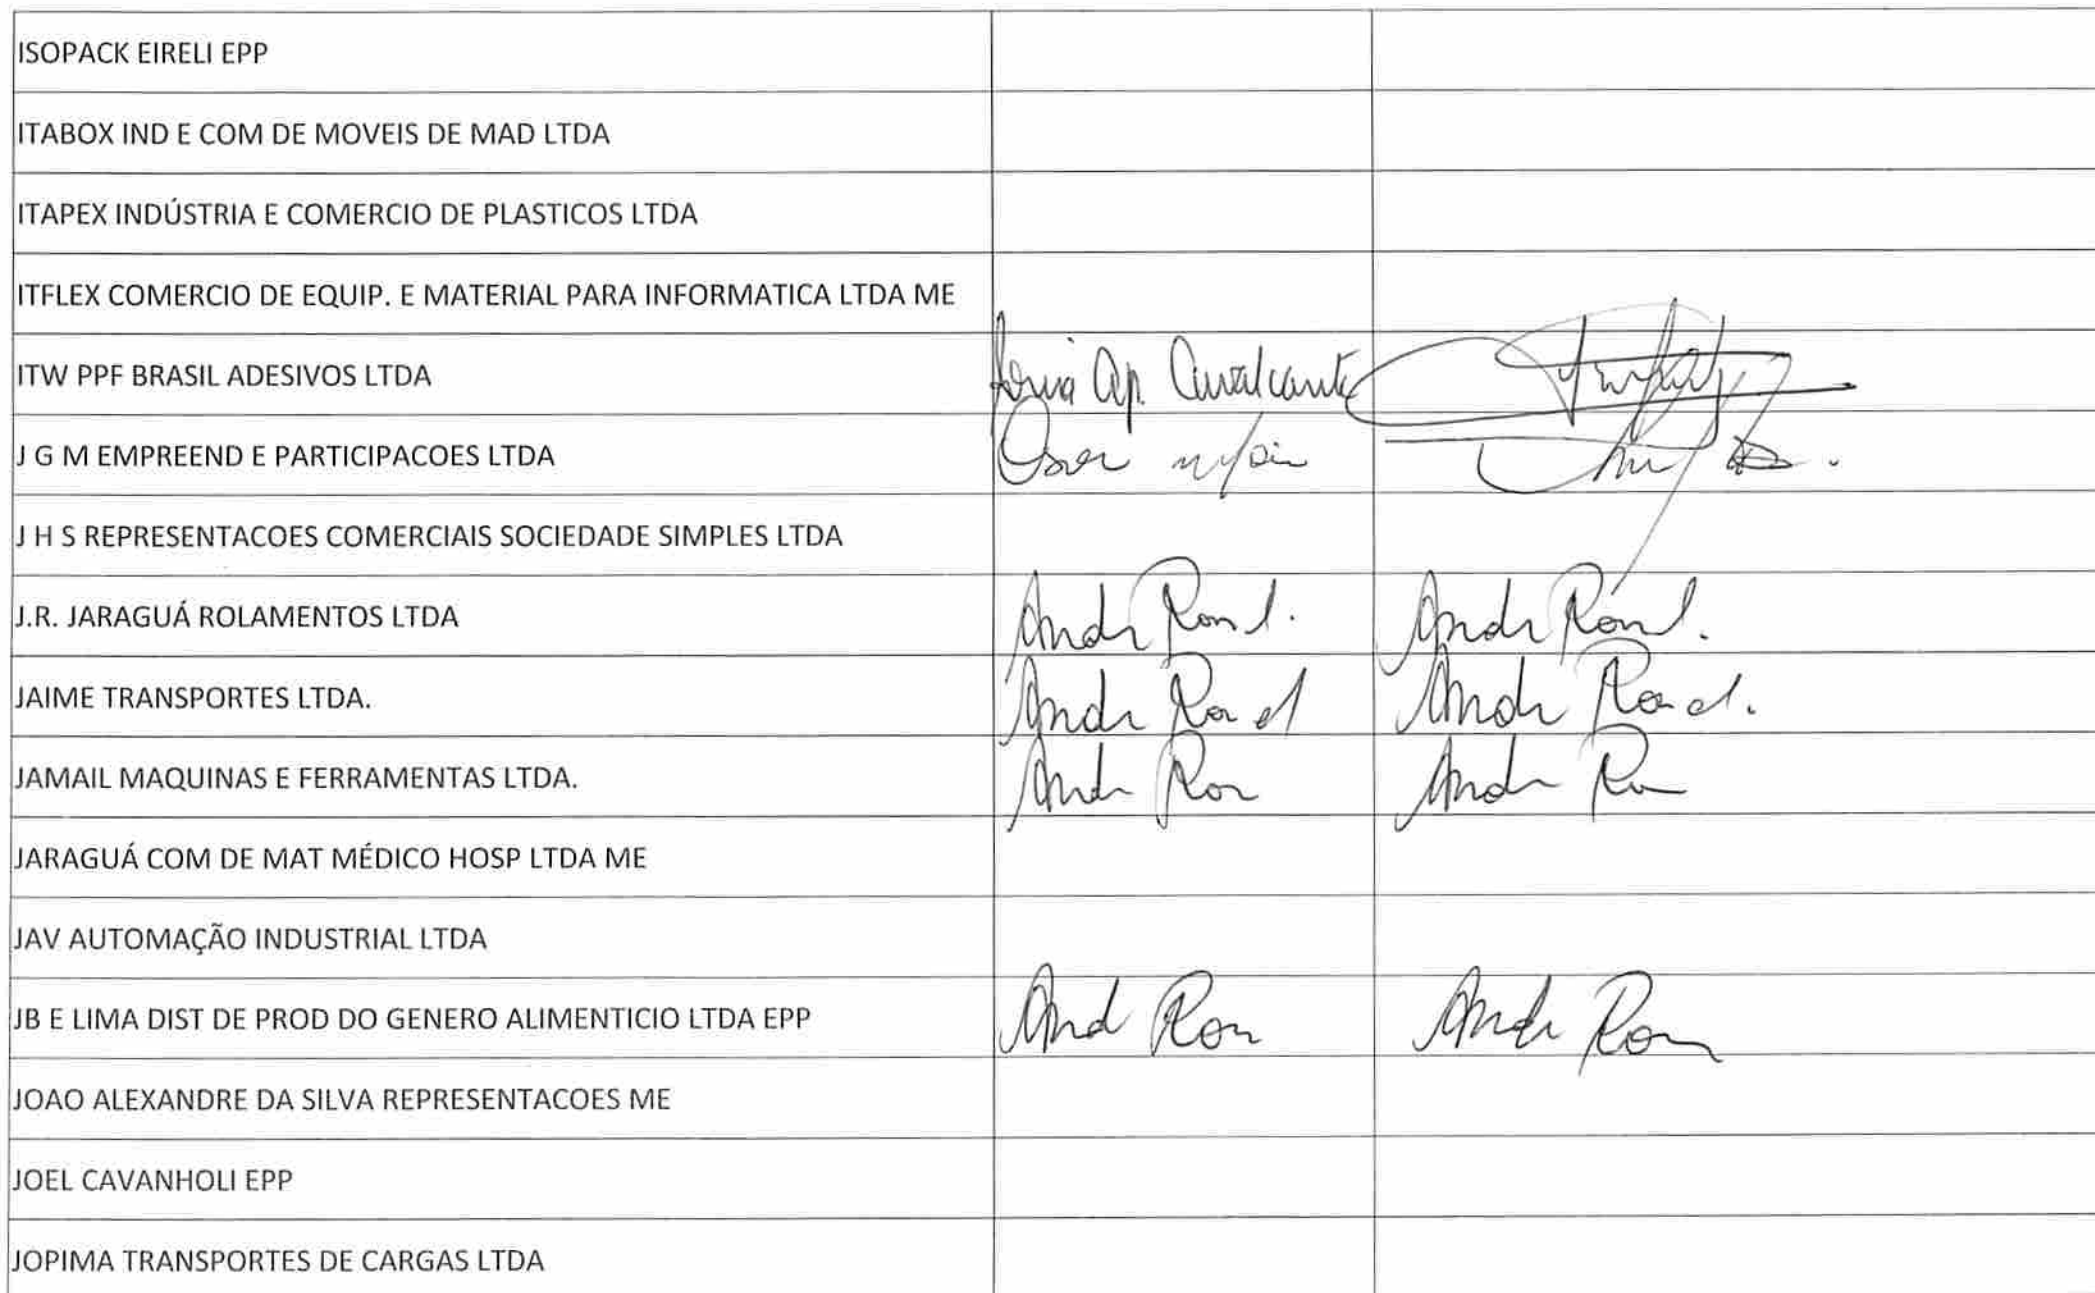 ISOPACK EIRELI EPP
ITABOX IND E COM DE MOVEIS DE MAD LTDA
ITAPEX INDÚSTRIA E COMERCIO DE PLASTICOS LTDA
ITFLEX COMERCIO DE EQUIP. E MATERIAL PARA INFORMATICA LTDA ME
ITW PPF BRASIL ADESIVOS LTDA Ap. Cavalcante
J G M EMPREEND E PARTICIPACOES LTDA
J H S REPRESENTACOES COMERCIAIS SOCIEDADE SIMPLES LTDA
J.R. JARAGUÁ ROLAMENTOS LTDA
JAIME TRANSPORTES LTDA.
JAMAIL MAQUINAS E FERRAMENTAS LTDA.
JARAGUÁ COM DE MAT MÉDICO HOSP LTDA ME
JAV AUTOMAÇÃO INDUSTRIAL LTDA
JB E LIMA DIST DE PROD DO GENERO ALIMENTICIO LTDA EPP
JOAO ALEXANDRE DA SILVA REPRESENTACOES ME
JOEL CAVANHOLI EPP
JOPIMA TRANSPORTES DE CARGAS LTDA